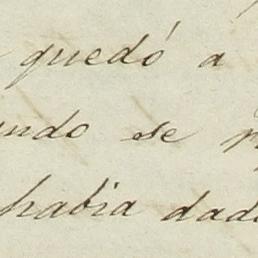 quedó á
ndo se
habia dad